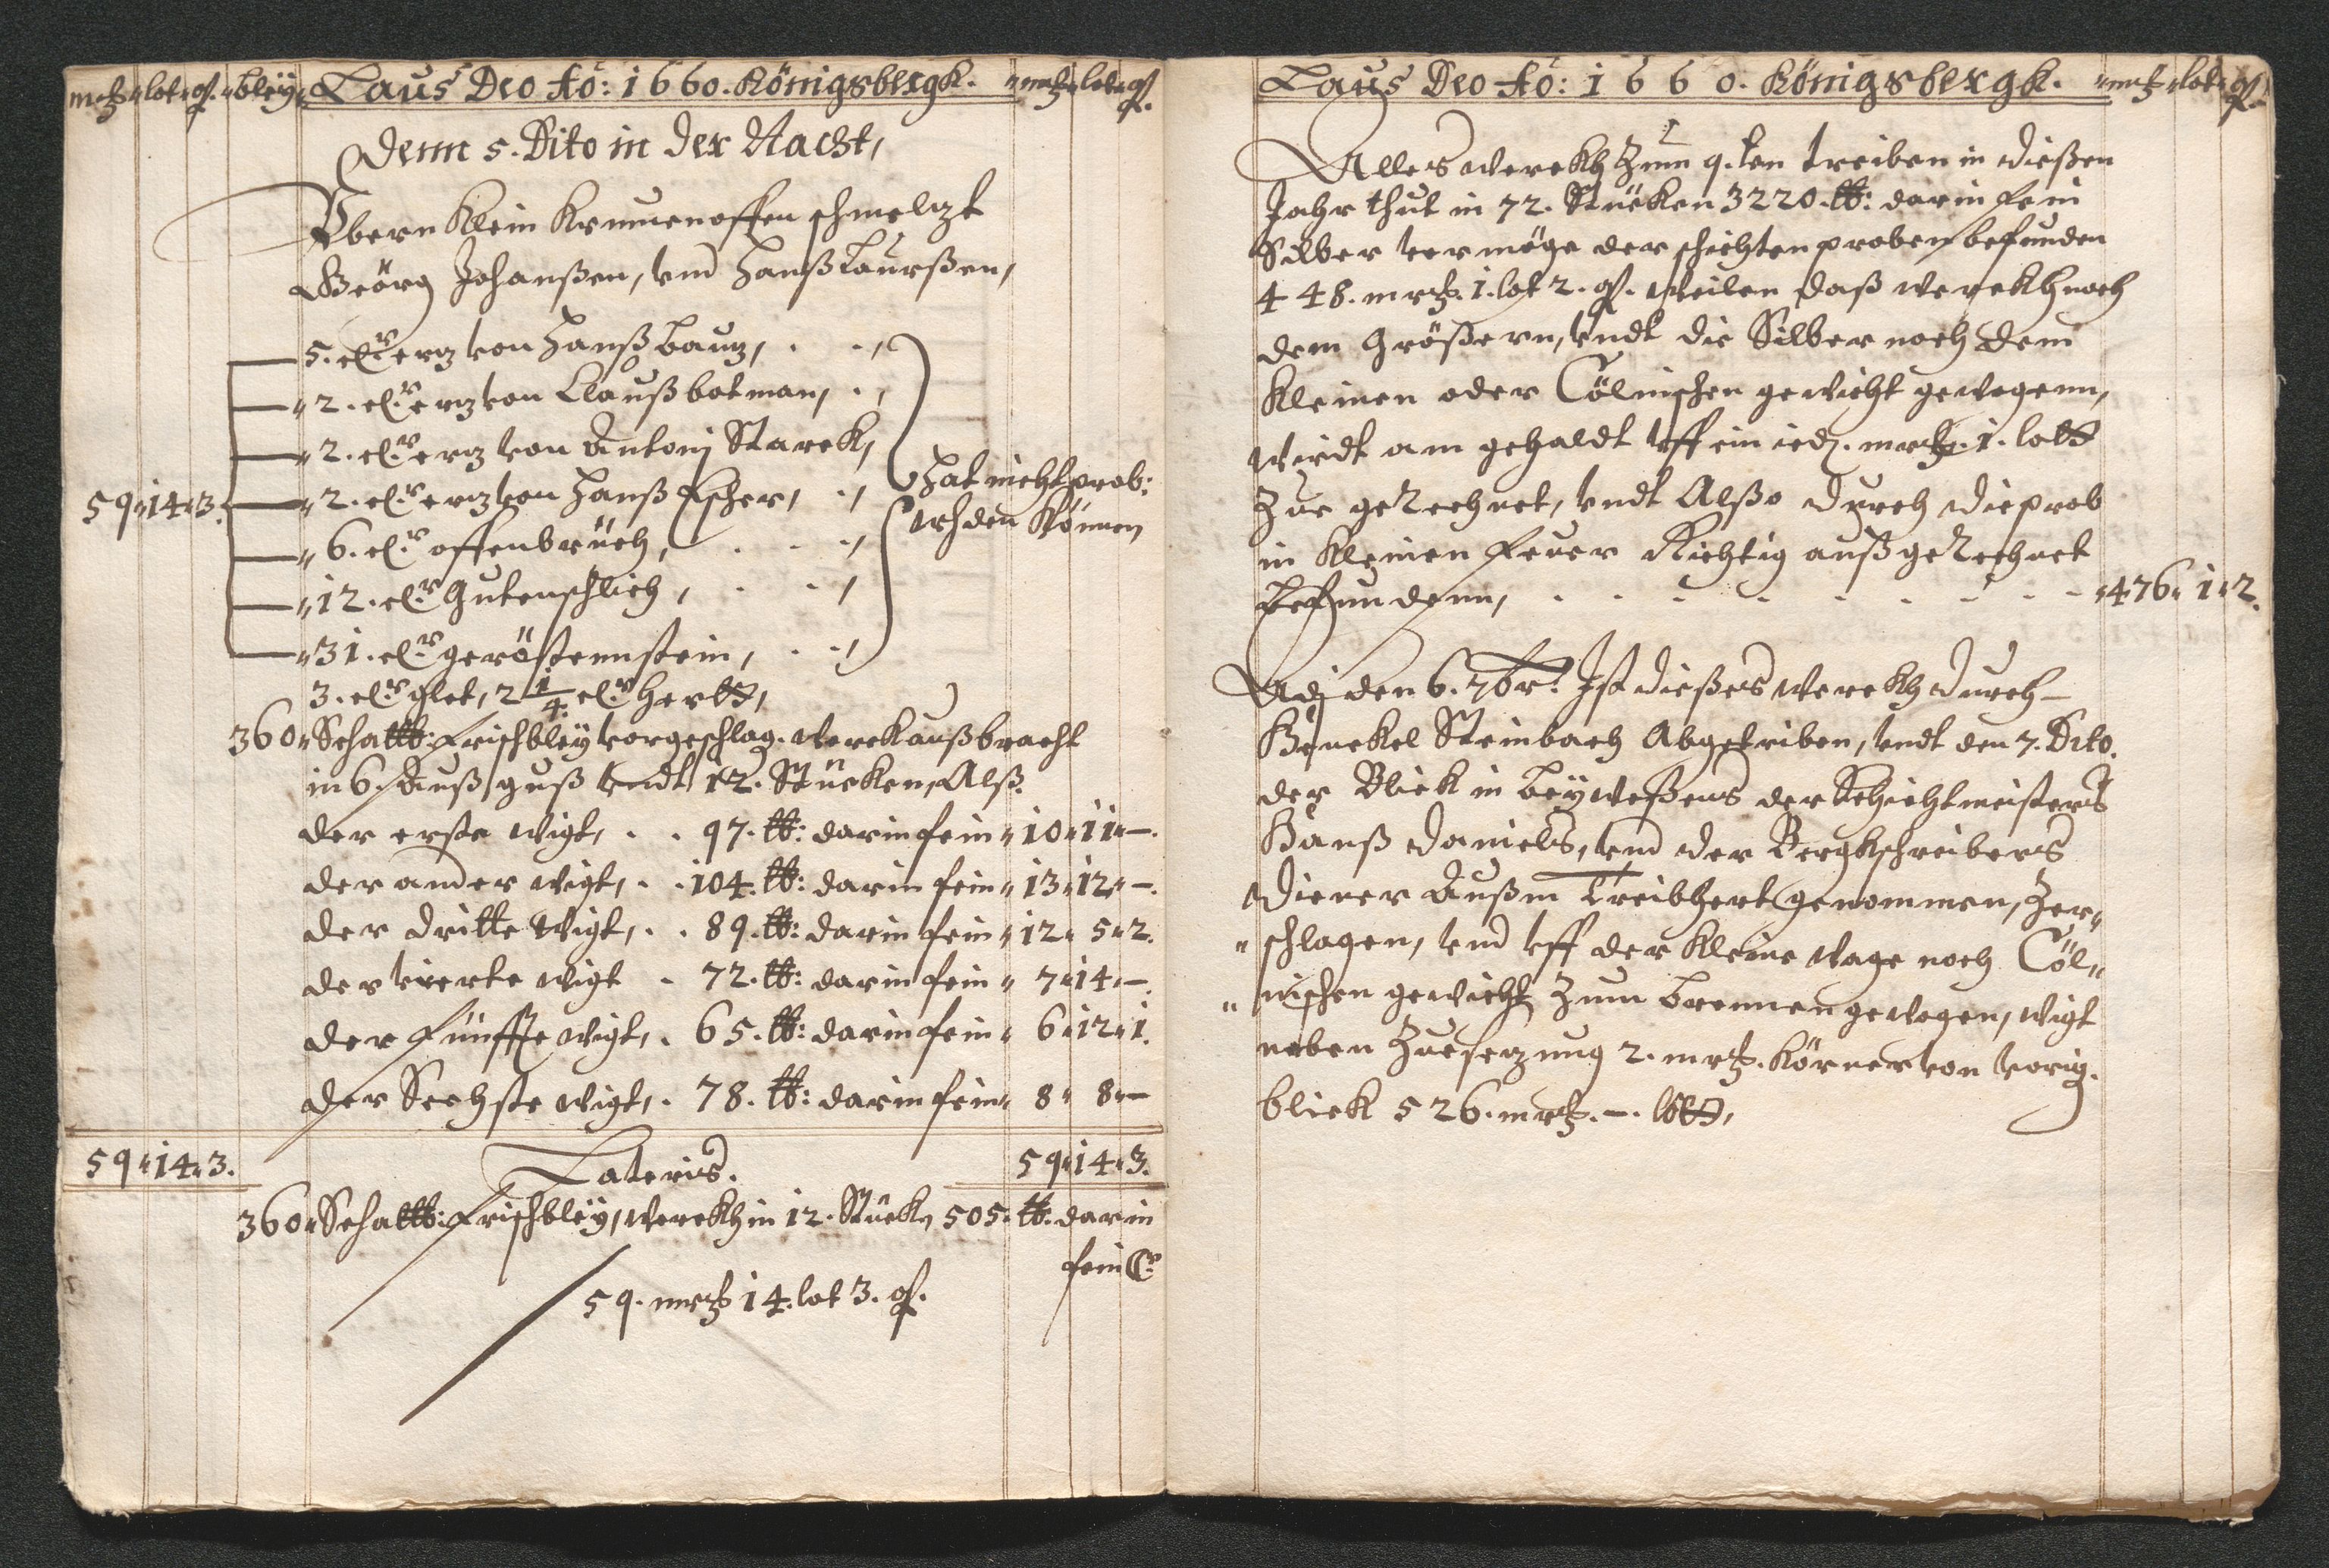 mrk lot q. bleÿ Laus Deo Ao: 1660. Königsbergk. mrk lot q.
Denn 5. Dito in der Nacht,
Vbern Klein Krumenoffen schmelzt
Geörg Johanßen, vnd Hanß Laurßen,
5. Ctr erz von Hanß Bauz,
2. Ctr erz von Claußbotman,
2. Ctr erz von Antonj Starck,
59 14 3. 2. Ctr erz von Hanß Escher, Hat nicht prob:
6. Ctr offenbrüch, irt den Können
12. Ctr Gutenschlich,
31. Ctr geröstennstein,
3. Ctr glet, 2 1/4 Ctr Hertt,
360 Schalltt: frischbleÿ vorgeschlag. werck außbracht
in 6. Außguß vndt 12. Stücken, Alß
der erste wigt, 97. tt: darin fein 10 11 —.
der ander wigt, 104. tt: darin fein 13 12 —.
der dritte wigt, 89. tt: darin fein 12 5 2.
der vierte wigt 72. tt: darin fein 7 14 —.
der fünffte wigt, 65. tt: darin fein 6 12 1.
der Sechste wigt, 78. tt: darin fein 8 8 —
59 14 3. Lateris. 59 14 3.
360 Schalltt: frischbleÿ, werckh in 12. Stück, 505. tt. darin
fein
59. mrk 14. lot 3. q.
Laus Deo Ao: 1660. Königsbergk. mrk lot q.
Alles werckh Zum 9.ten treiben in dießen
Jahr thut in 72. Stücken 3220. tt: darin fein
Silber vermöge der schichten proben befunden
448. mrk. 1. lot 2. q. weilen daß werckh nach
dem größern, vndt die Silber nach dem
Kleinen oder Cölnischen gewicht gewogenn,
wirdt am gehaldt vff ein ied. mrk. 1. lott
Zue gerechnet, vndt Alßo durch die prob
in Kleinen feuer Richtig außgerechnet
befundenn, 476 1 2.
Adj den 6. 7br. Ist dießes werckh durch
Henckel Steinbach Abgetriben, vndt den 7. Dito.
der Blick in beÿweßens der Schichtmeisters
Hanß Daniels, vnd der Bergkschreibers
Diener Außm Treibhert genommen, Zer„
„schlagen, vnd vff der Kleine Wage nach Cöl„
„nischen gewicht Zum brennen gewogen, wigt
neben Zuesezung 2. mrk. Körner von vorig.
blick 526. mrk. —. lott,